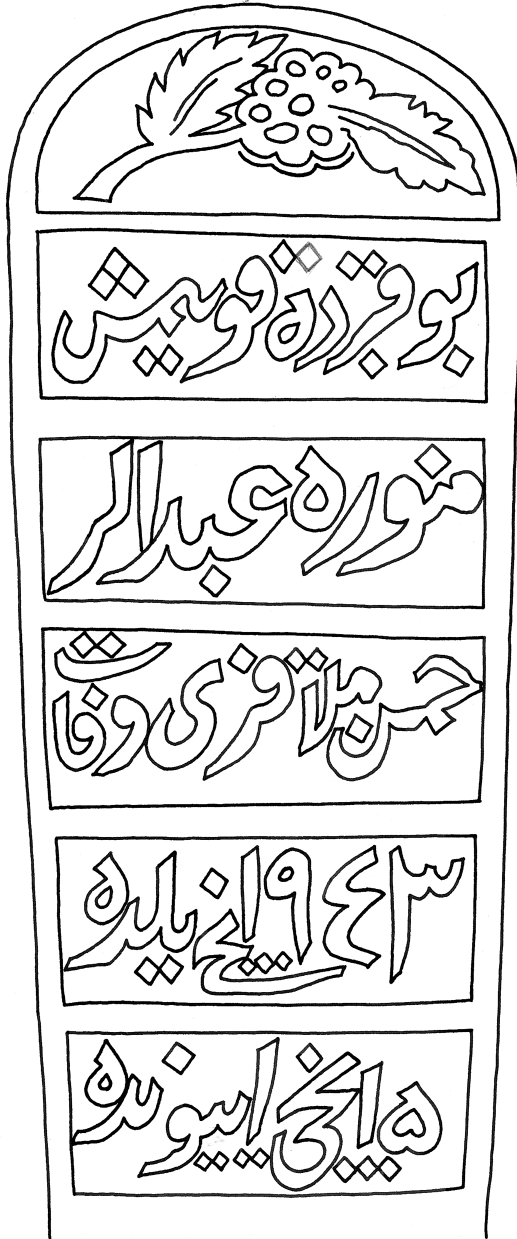 بو قبرده قويمش
منوره عبدالر
حمن ملا قزى وفات
١٩٤٣ نچى يلده
١٥ نچى اييونده